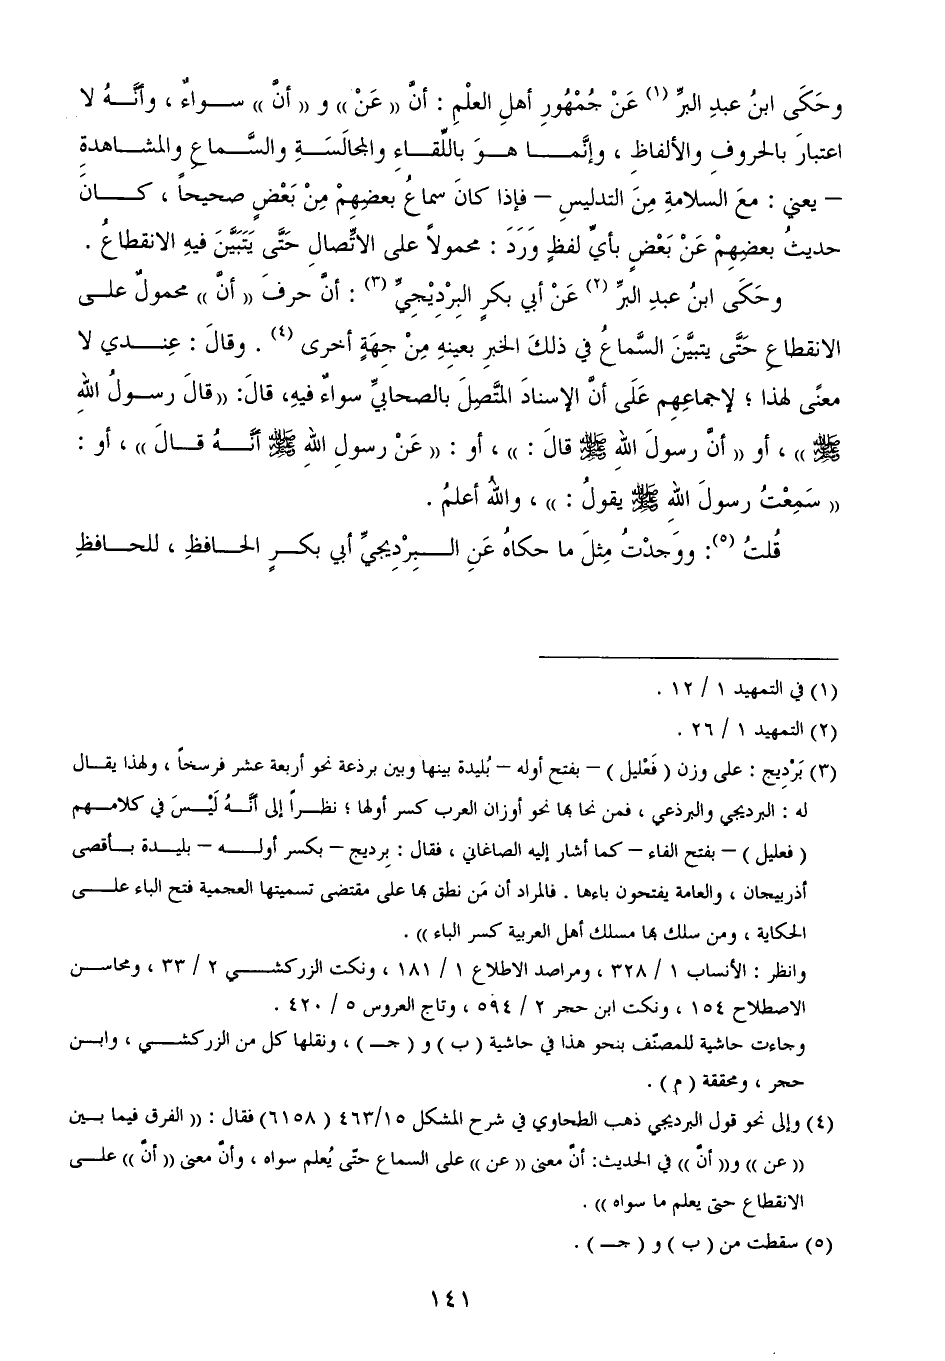 وحَكَى ابنُ عبدِ البرِّ (١) عَنْ جُمْهُورِ أهلِ العلْمِ : أنَّ (( عَنْ )) و (( أنَّ )) سـواءٌ ، وأنَّـهُ لا
اعتبارَ بالحروفِ والألفاظِ ، وإنَّمـا هوَ باللِّقـاءِ والمجالَسَـةِ والسَّماعِ والمشـاهدةِ
– يعني : معَ السلامةِ مِنَ التدليسِ – فإذا كانَ سماعُ بعضهِمْ مِنْ بَعْضٍ صحيحاً ، كـانَ
حديثُ بعضِهِمْ عَنْ بَعْضٍ بأيِّ لفظٍ وَرَدَ : محمولاً على الاتِّصالِ حَتَّى يَتَبَيَّنَ فيهِ الانقطاعُ .
وحَكَى ابنُ عبدِ البرِّ (٢) عَنْ أبي بكرٍ البرْدِيْجيِّ (٣) : أنَّ حرفَ (( أنَّ )) محمولٌ علـى
الانقطاعِ حَتَّى يتبيَّنَ السَّماعُ في ذلكَ الخبرِ بعينِهِ مِنْ جهةٍ أخرى (٤) . وقالَ : عِنـدي لا
معنًى لهذا ؛ لإجماعِهِم عَلَى أنَّ الإسنادَ المتَّصِلَ بالصحابيِّ سواءٌ فيهِ، قالَ: (( قالَ رسـولُ اللهِ
ﷺ )) ، أو (( أنَّ رسولَ اللهِ ﷺ قالَ : )) ، أو : (( عَنْ رسولِ اللهِ ﷺ أنَّـهُ قـالَ )) ، أو :
(( سَمِعْتُ رسولَ اللهِ ﷺ يقولُ : )) ، واللهُ أعلمُ .
قُلتُ (٥): ووَجدْتُ مِثلَ ما حكاهُ عَنِ البـرْدِيجيِّ أبي بكـرٍ الحـافظِ ، للحـافظِ
(١) في التمهيد ١ / ١٢ .
(٢) التمهيد ١ / ٢٦ .
(٣) بَرْديج : على وزن ( فَعْليل ) – بفتح أوله – بُليدة بينها وبين برذعة نحو أربعة عشر فرسخاً ، ولهذا يقـال
له : البرديجي والبرذعي ، فمن نحا بها نحو أوزان العرب كسر أولها ؛ نظـراً إلى أنَّـهُ لَيْـسَ في كلامـهم
( فعليل ) – بفتح الفاء – كما أشار إليه الصاغاني ، فقال : برديج – بكسر أولـه – بليـدة بـأقصى
أذربيجان ، والعامة يفتحون باءها . فالمراد أن مَن نطق بها على مقتضى تسميتها العجمية فتح الباء علـى
الحكاية ، ومن سلك بها مسلك أهل العربية كسر الباء )) .
وانظر : الأنساب ١ / ٣٢٨ ، ومراصد الاطلاع ١ / ١٨١ ، ونكت الزركشـي ٢ / ٣٣ ، ومحاسـن
الاصطلاح ١٥٤ ، ونكت ابن حجر ٢ / ٥٩٤ ، وتاج العروس ٥ / ٤٢٠ .
وجاءت حاشية للمصنّف بنحو هذا في حاشية ( ب ) و ( جـ ) ، ونقلها كل من الزركشـي ، وابـن
حجر ، ومحققة ( م ) .
(٤) وإلى نحو قول البرديجي ذهب الطحاوي في شرح المشكل ٤٦٣/١٥ ( ٦١٥٨) فقال : (( الفرق فيما بـين
(( عن )) و(( أنَّ )) في الحديث: أنَّ معنى (( عن )) على السماع حتّى يُعلم سواه ، وأنَّ معنى (( أنَّ )) علـى
الانقطاع حتى يعلم ما سواه )) .
(٥) سقطت من ( ب ) و ( جـ ) .
١٤١